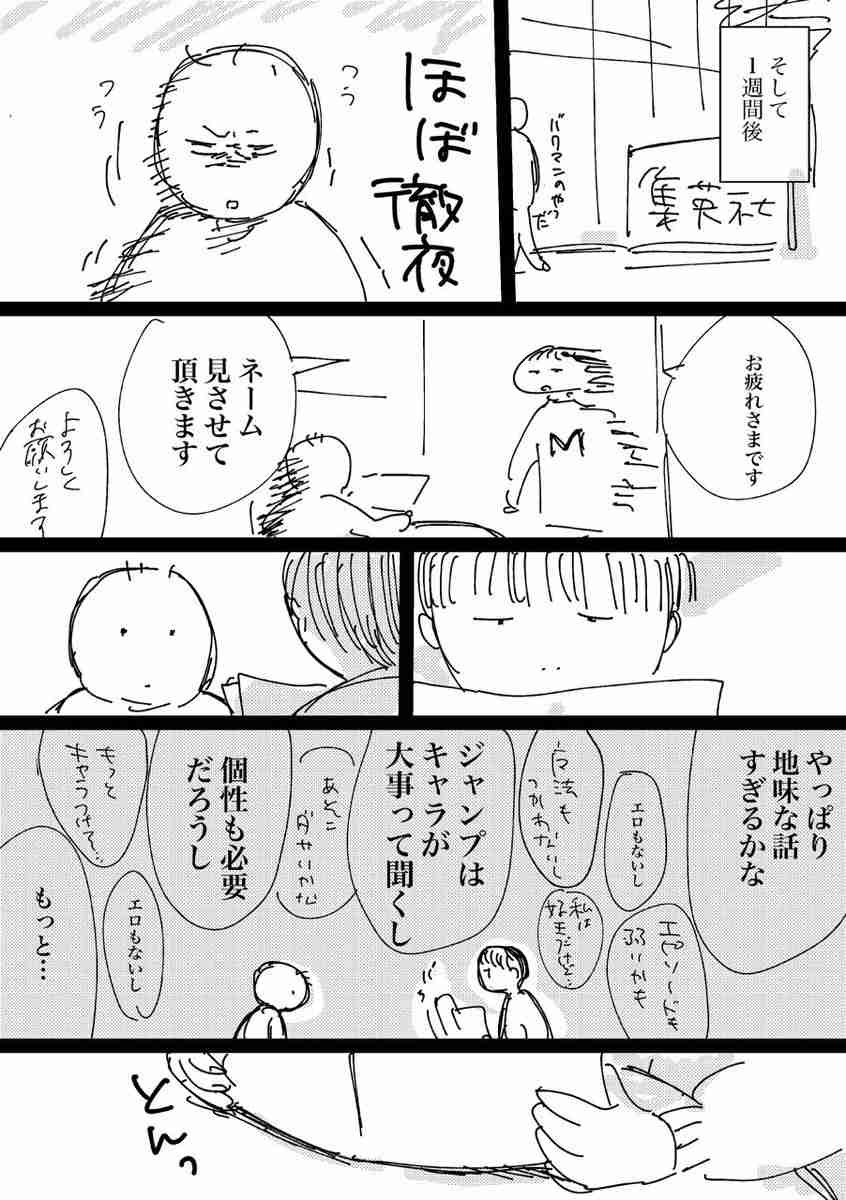 そして
1週間後
集英社
バクマンのやつ
だ
ほぼ
徹夜
つぅ
つぅ
お疲れさまです
M
ネーム
見させて
頂きます
よろしく
お願いします
やっぱり
地味な話
すぎるかな
エピソードも
弱いかも
エロもないし
魔法も
つかわないし
私は
好きだけど…
ジャンプは
キャラが
大事って聞くし
あとこ
ダサいかな
個性も必要
だろうし
もっと
キャラつけて…
エロもないし
もっと…
とんっ